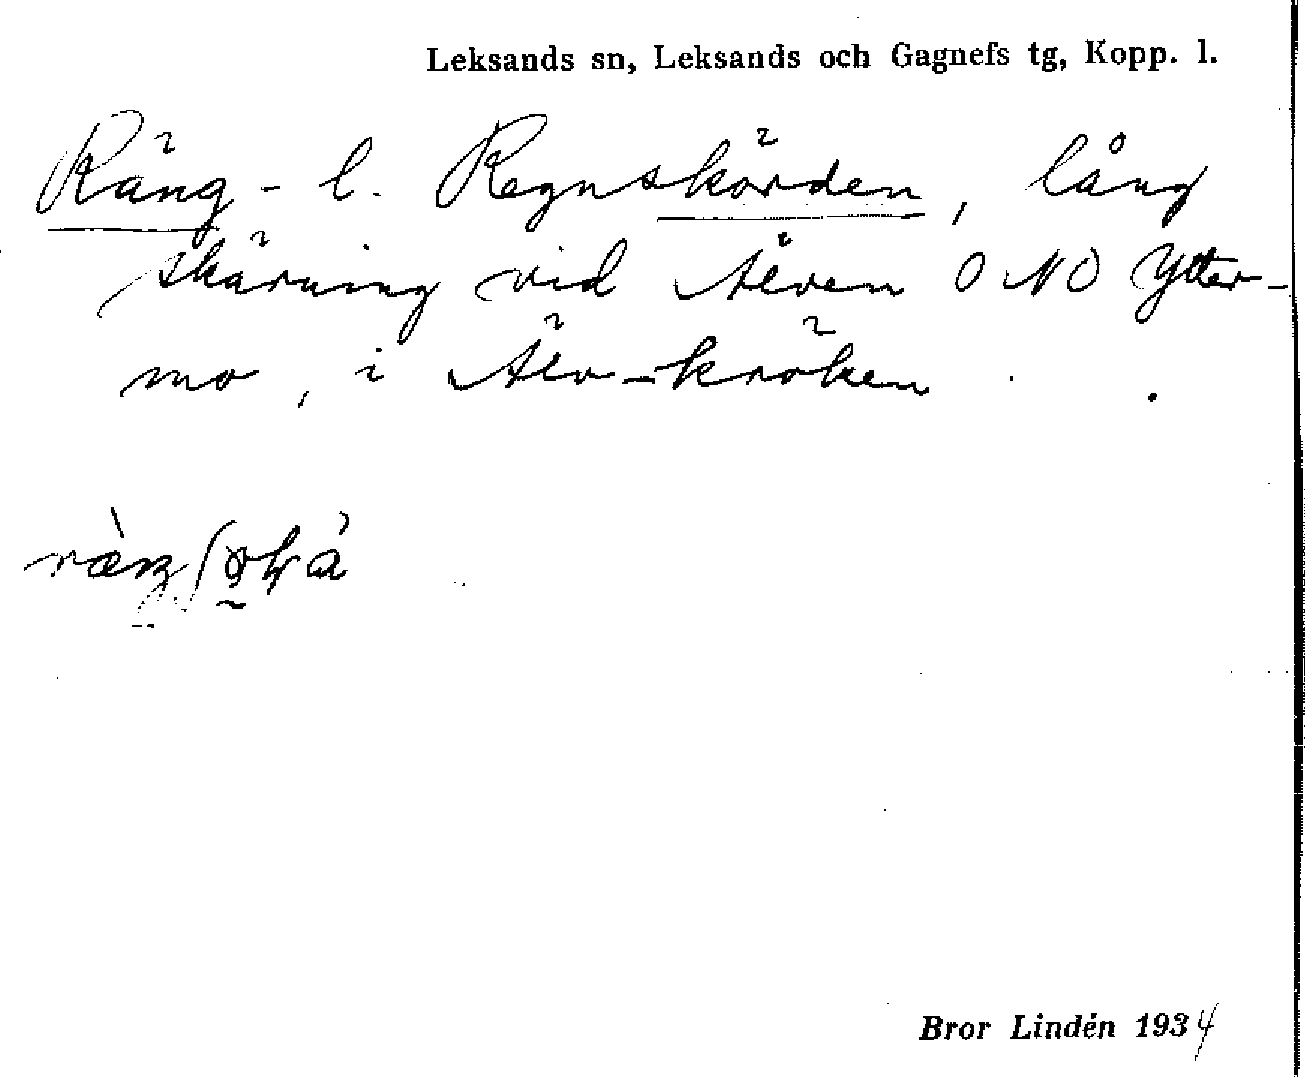 Leksands sn, Leksands och Gagnefs tg, Kopp. l.
Räng- l. Regnskörden, lång
skärning vid Älven ONO Ytter-
mo, i Älv-kröken.
Bror Lindén 1934